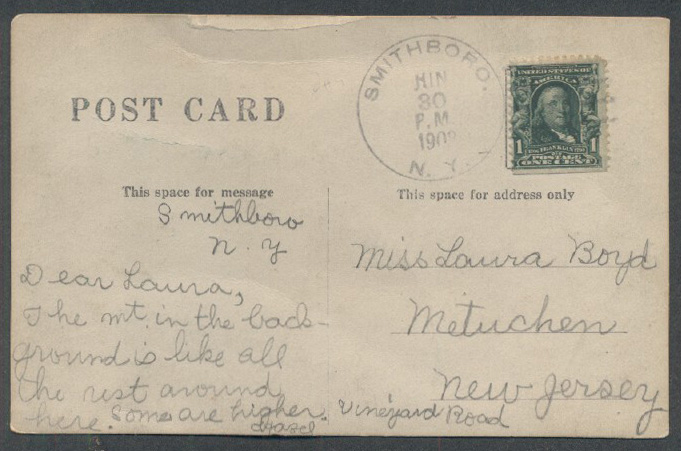 POST CARD
SMITHBORO.
JUN
30
P.M.
1908
N. Y.
UNITED STATES OF
AMERICA
1 1
POSTAGE
ONE CENT
This space for message
Smithboro
N. Y
Dear Laura,
The mt. in the back-
ground is like all
the rest around
here. Some are higher.
Hazel
This space for address only
Miss Laura Boyd
Metuchen
New Jersey
Vineyard Road